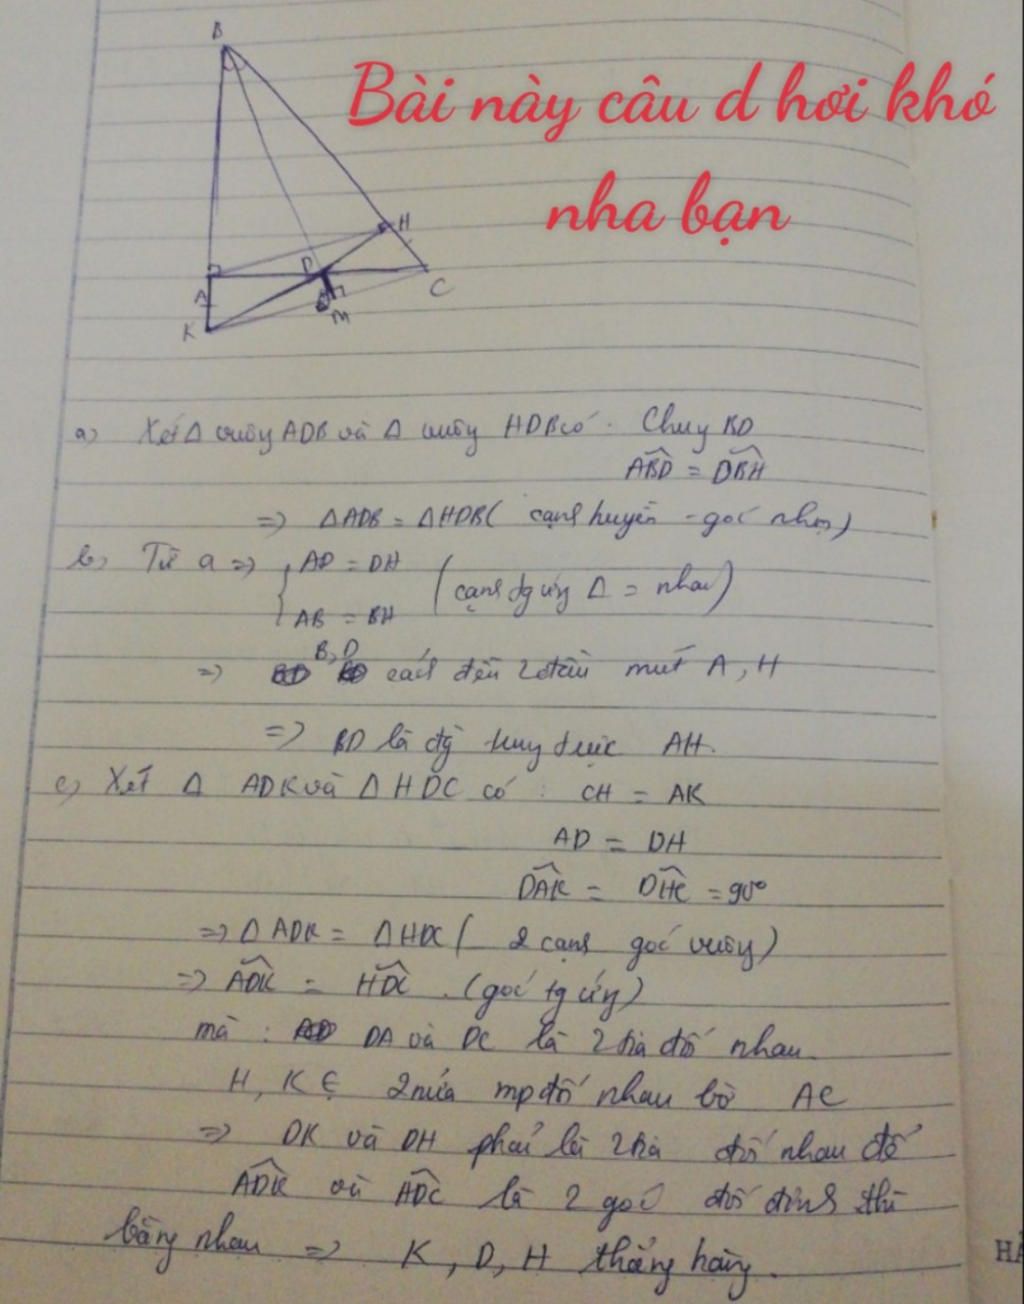 Bài này câu d hơi khó
nha bạn
B
H
D
A
C
K
M
a) Xét Δ vuông ADB và Δ vuông HDB có : Chung BD
ABD = DBH
=> ΔADB = ΔHDB ( cạnh huyền - góc nhọn)
b) Từ a => { AD = DH
AB = BH
(cạnh tg ứng Δ = nhau)
B, D
=> cách đều 2 đầu mút A, H
=> BD là đg trung trực AH.
c) Xét Δ ADK và Δ HDC có : CH = AK
AD = DH
DAK = DHC = 90°
=> Δ ADK = ΔHDC ( 2 cạnh góc vuông)
=> ADK = HDC . (góc tg ứng)
mà : DA và DC là 2 tia đối nhau
H, K ∈ 2 nửa mp đối nhau bờ AC
=> DK và DH phải là 2 tia đối nhau để
ADK và ADC là 2 góc đối đỉnh thì
bằng nhau => K, D, H thẳng hàng.